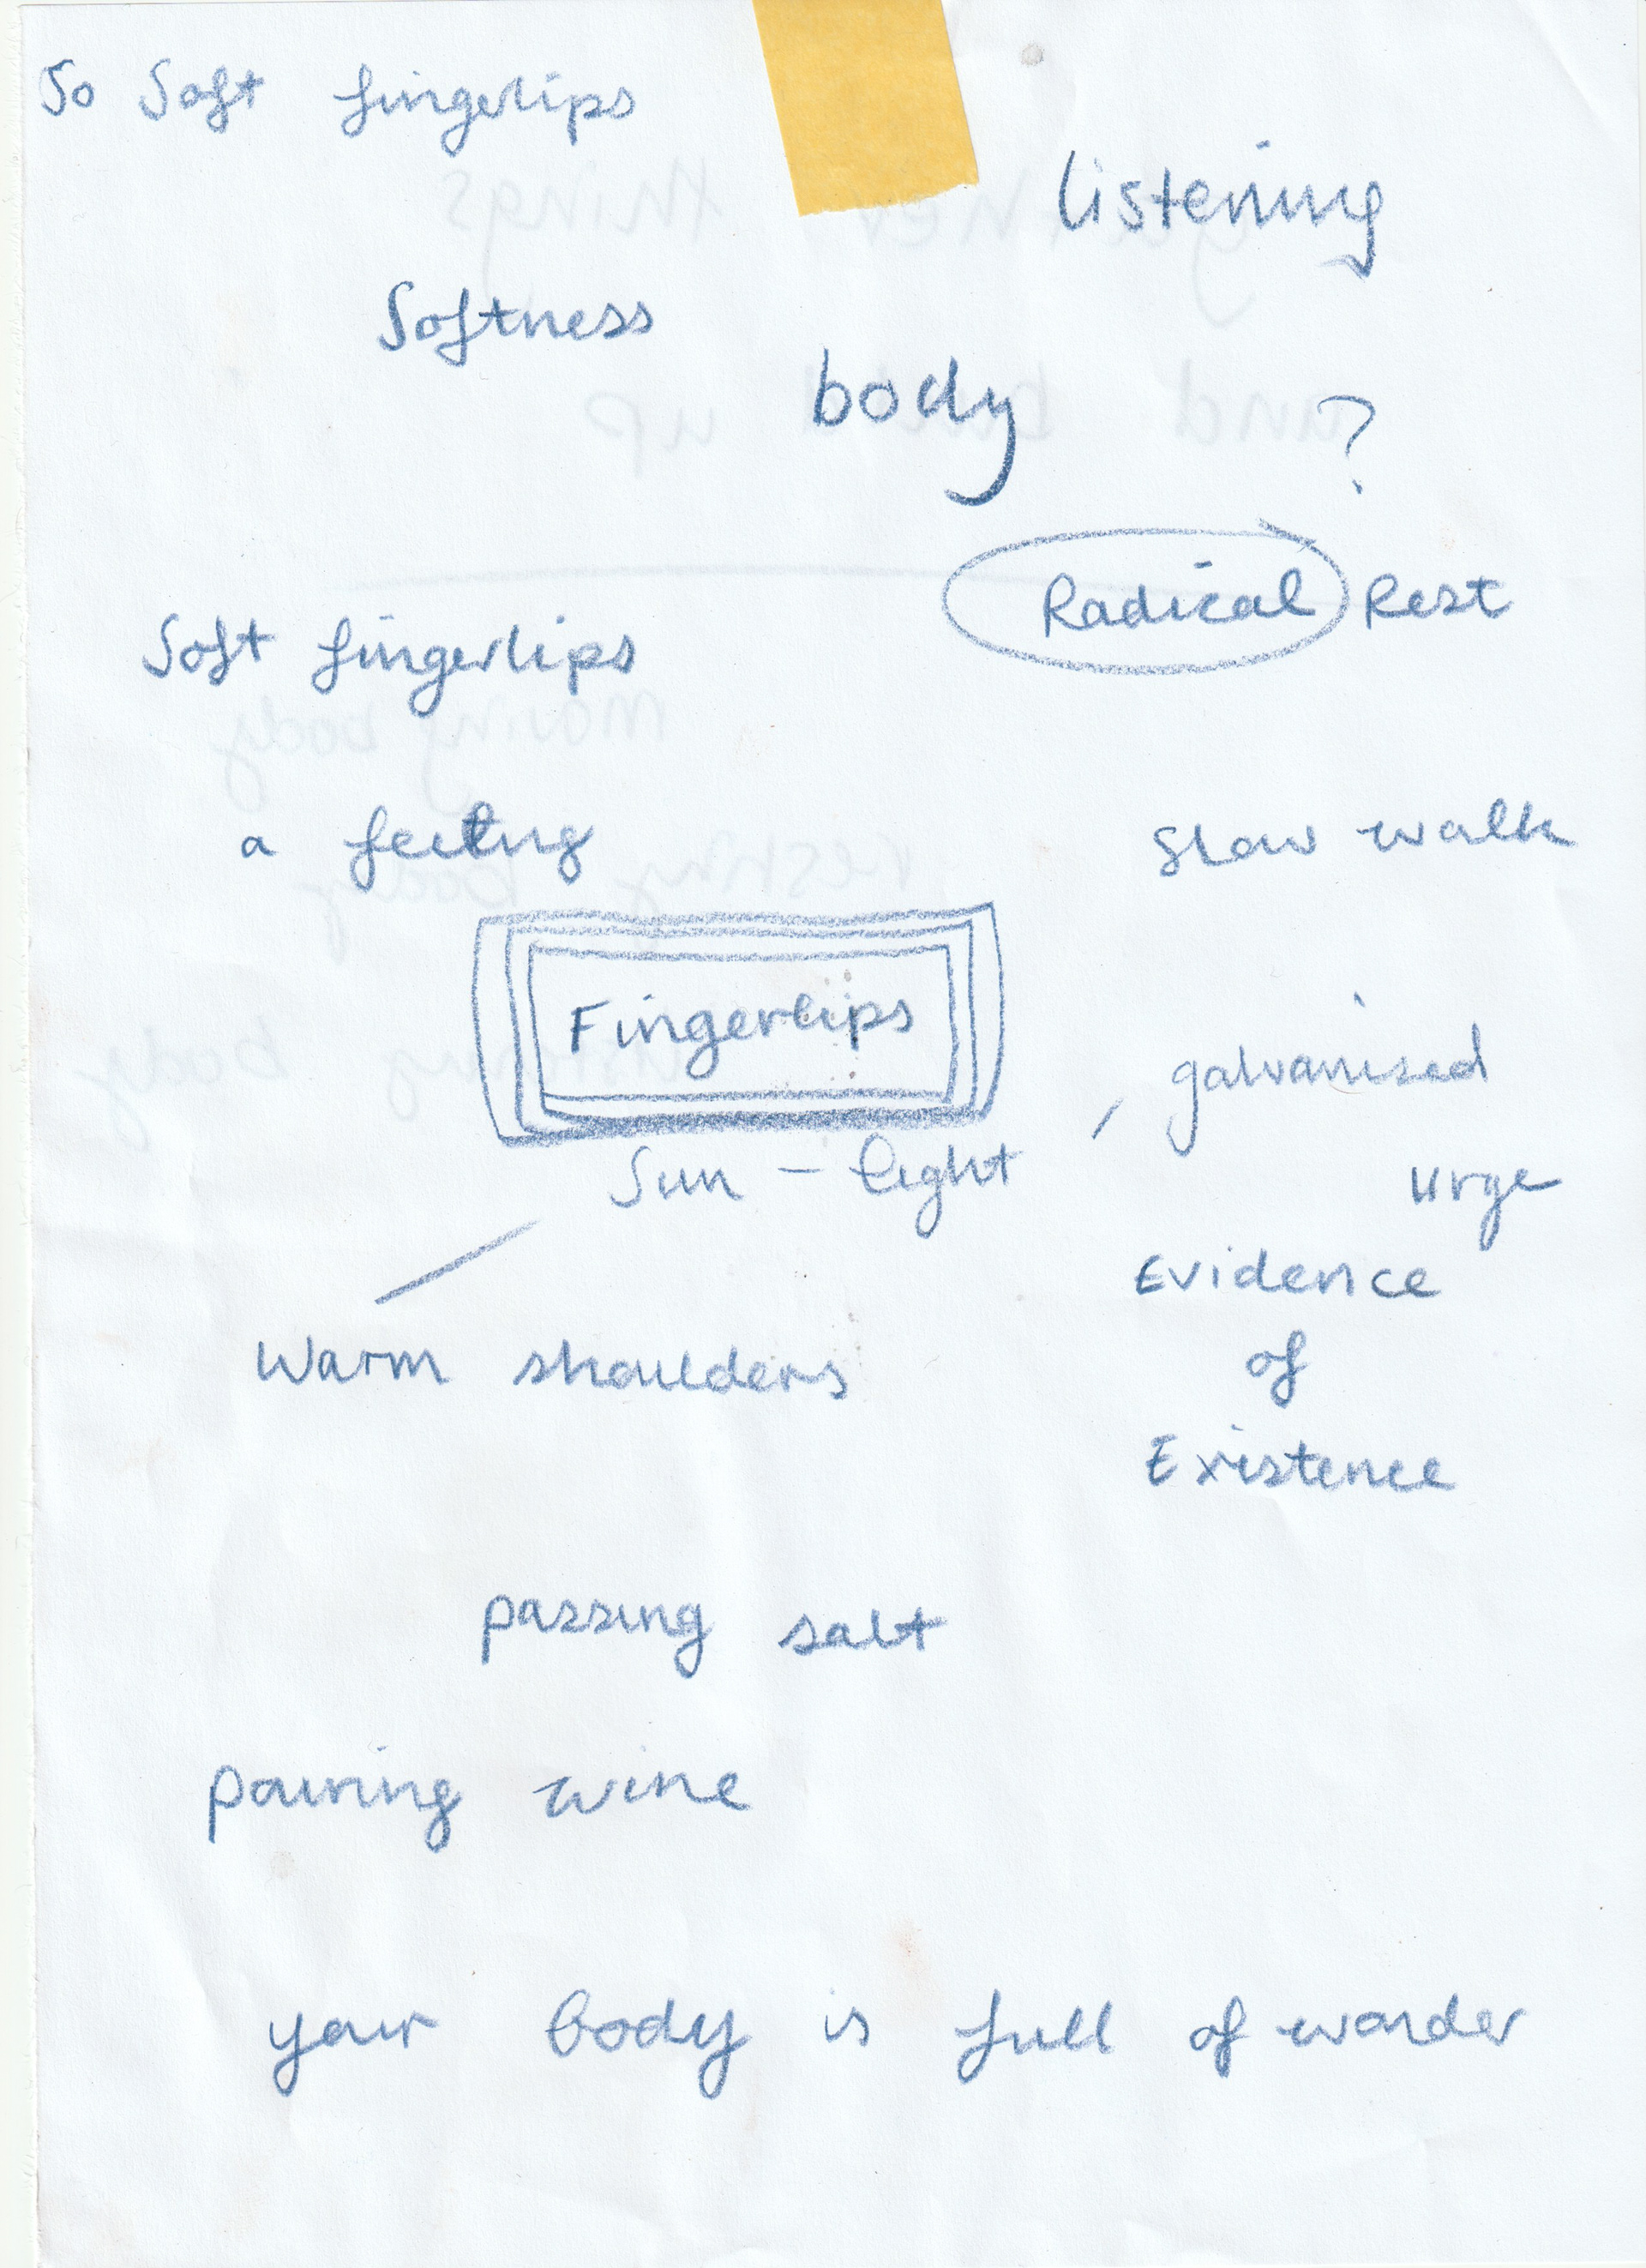 So Soft fingerlips
listening
Softness
body
?
Radical Rest
Soft fingerlips
a feeling
Slow walk
Fingerlips
galvanised
Sun - light
urge
Evidence
of
Existence
Warm shoulders
passing salt
pouring wine
your body is full of wonder